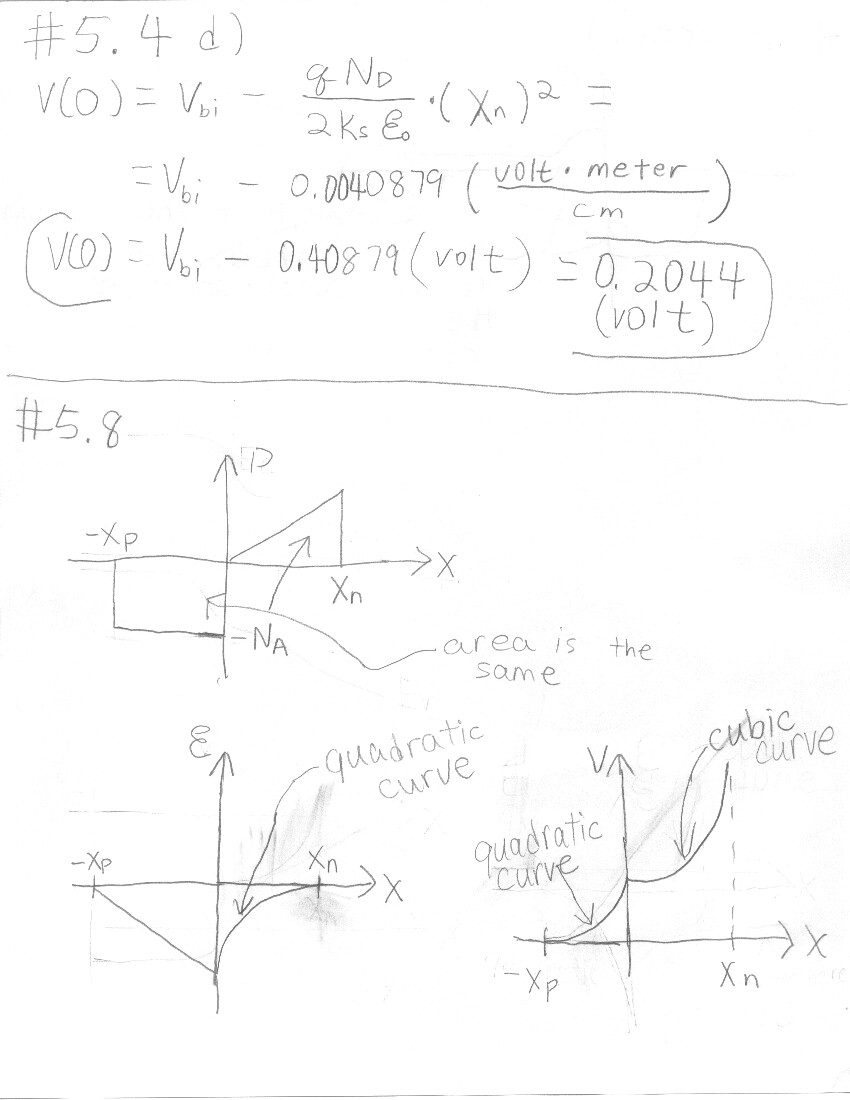 #5.4 d)
V(0) = Vbi - qND/2KsƐ₀ ·(Xn)² =
= Vbi - 0.0040879 (volt·meter/cm)
V(0) = Vbi - 0.40879 (volt) = 0.2044
(volt)
#5.8
ρ
-Xp
X
Xn
-NA
area is the
same
Ɛ
quadratic
curve
-Xp
Xn
X
cubic
curve
V
quadratic
curve
X
-Xp
Xn